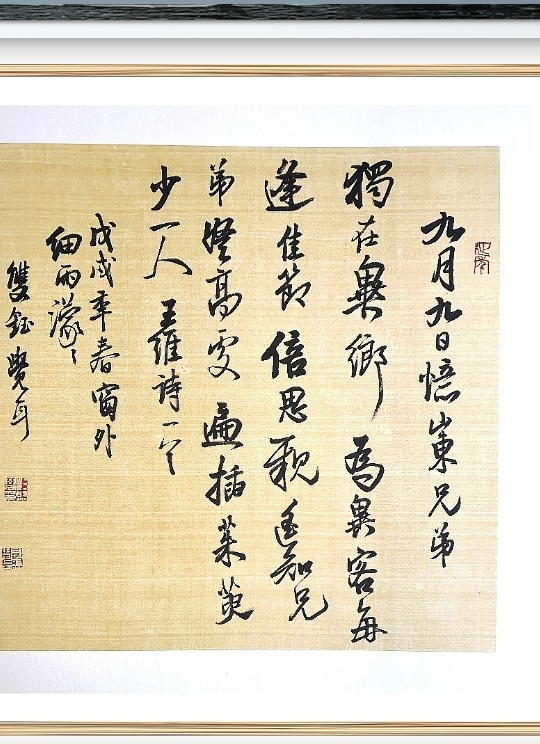 九月九日憶山東兄弟
獨在異鄉為異客每
逢佳節倍思親遙知兄
弟登高處遍插茱萸
少一人 王維詩一首
戊戌年春窗外
細雨濛〻
雙鈺覺